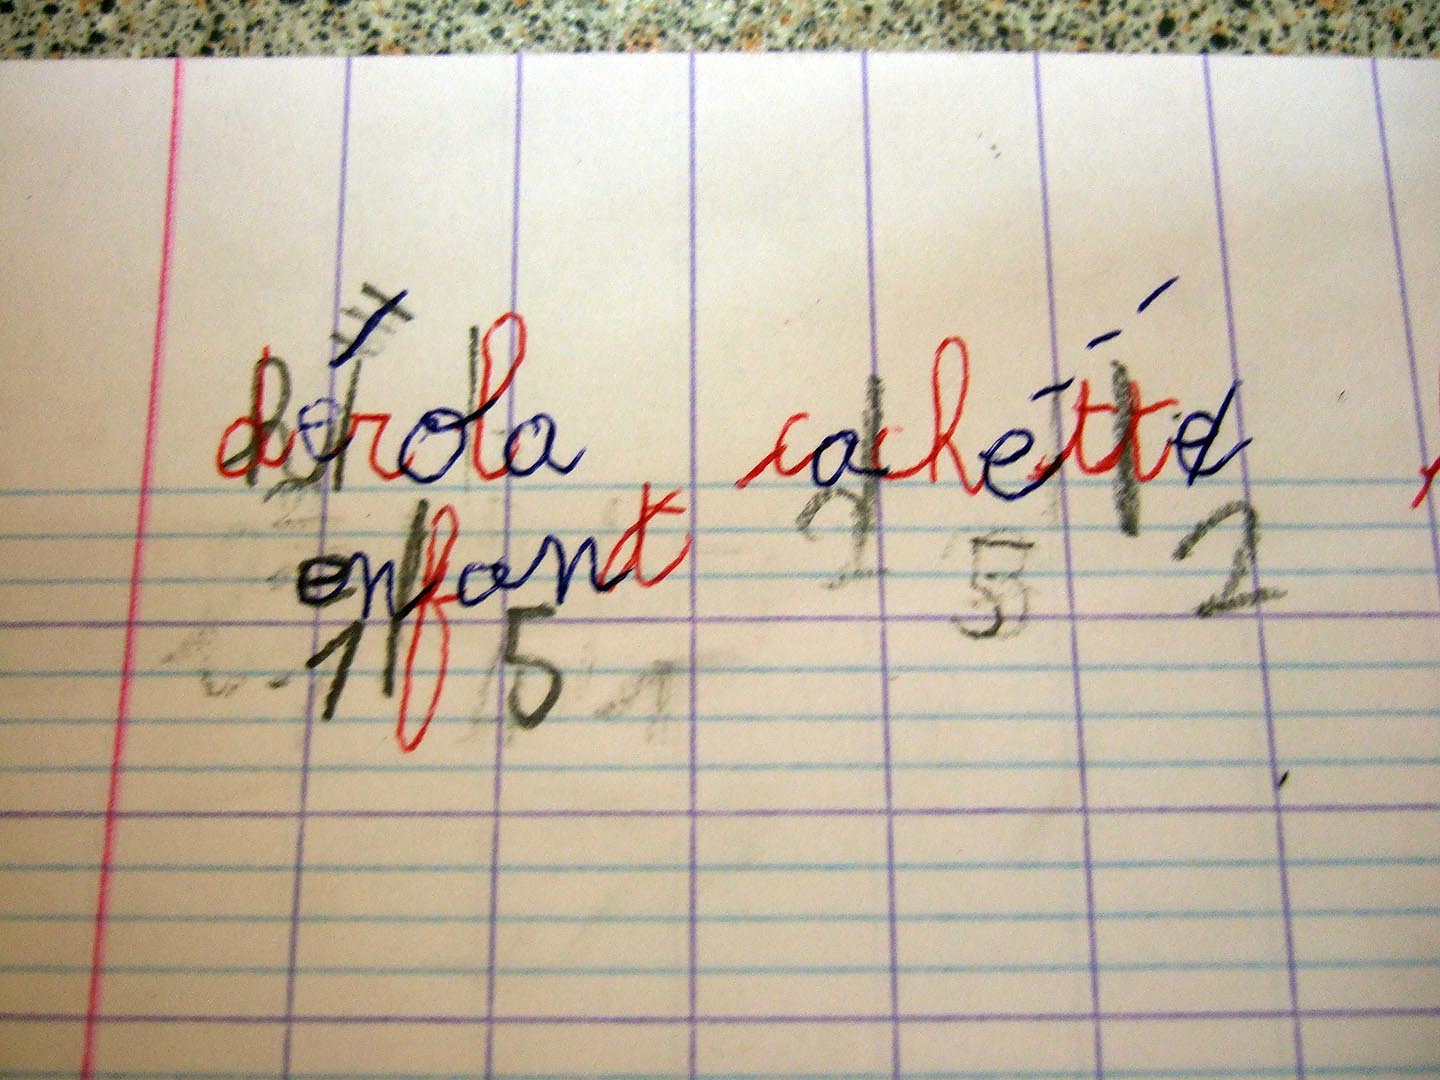 dérola cachétte
enfant
2 5 2
1 5